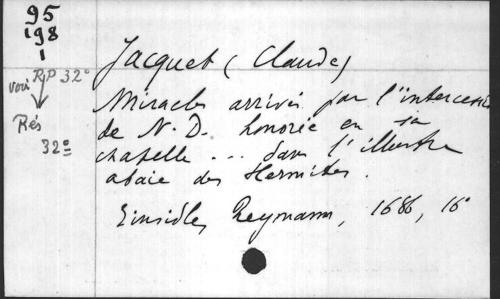 95
198
1
Jacquet (Claude)
voir RéP 32°
Rés
32°
Miracles arrivés par l'intercession
de N.D. honorée en sa
chapelle ... dans l'illustre
abaie des Hermites.
Einsidlen Reymann, 1686, 16°